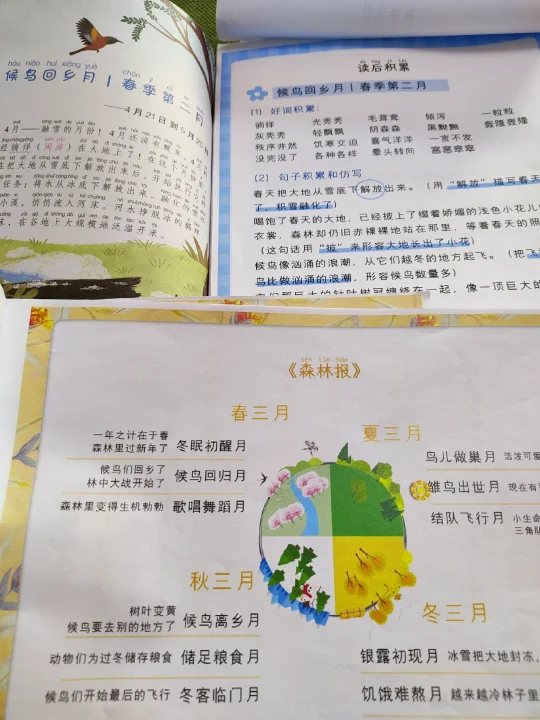 hòu niǎo huí xiāng yuè
候鸟回乡月 | 春季第二月
——4月21日到5月20
4月——融雪的月份！4月还没有
徜徉（闲游）在大地上了！在
把大地从雪底下解放出来后，开始
任务：将水从冰底下解放
小溪，悄悄流入河床，河水挣脱冰
，在谷地上大规模地泛滥开来。
读后积累
候鸟回乡月 | 春季第二月
(1) 好词积累：
徜徉 光秃秃 毛茸茸 倾泻 一粒粒
灰秃秃 轻飘飘 阴森森 黑黝黝 轰隆轰隆
秩序井然 饥寒交迫 喜气洋洋 一言不发
没完没了 各种各样 晕头转向 窸窸窣窣
(2) 句子积累和仿写
春天把大地从雪底下解放出来。（用“解放”描写春天
了，积雪融化了）
喝饱了春天的大地，已经披上了缀着娇媚的浅色小花儿
衣裳。森林却仍旧赤裸裸地站在那里，等着春天的照
（这句话用“披”来形容大地长出了小花）
候鸟像汹涌的浪潮，从它们越冬的地方起飞。（把飞
鸟比做汹涌的浪潮，形容候鸟数量多）
针叶树冠缠绕在一起，像一顶巨大的
sēn lín bào
《森林报》
春三月
一年之计在于春
森林里过新年了 冬眠初醒月
候鸟们回乡了
林中大战开始了 候鸟回归月
森林里变得生机勃勃 歌唱舞蹈月
夏三月
鸟儿做巢月 活泼可爱
雏鸟出世月 现在有
结队飞行月 小生命
三角队
秋三月
树叶变黄
候鸟要去别的地方了 候鸟离乡月
动物们为过冬储存粮食 储足粮食月
候鸟们开始最后的飞行 冬客临门月
冬三月
银露初现月 冰雪把大地封冻，
饥饿难熬月 越来越冷林子里